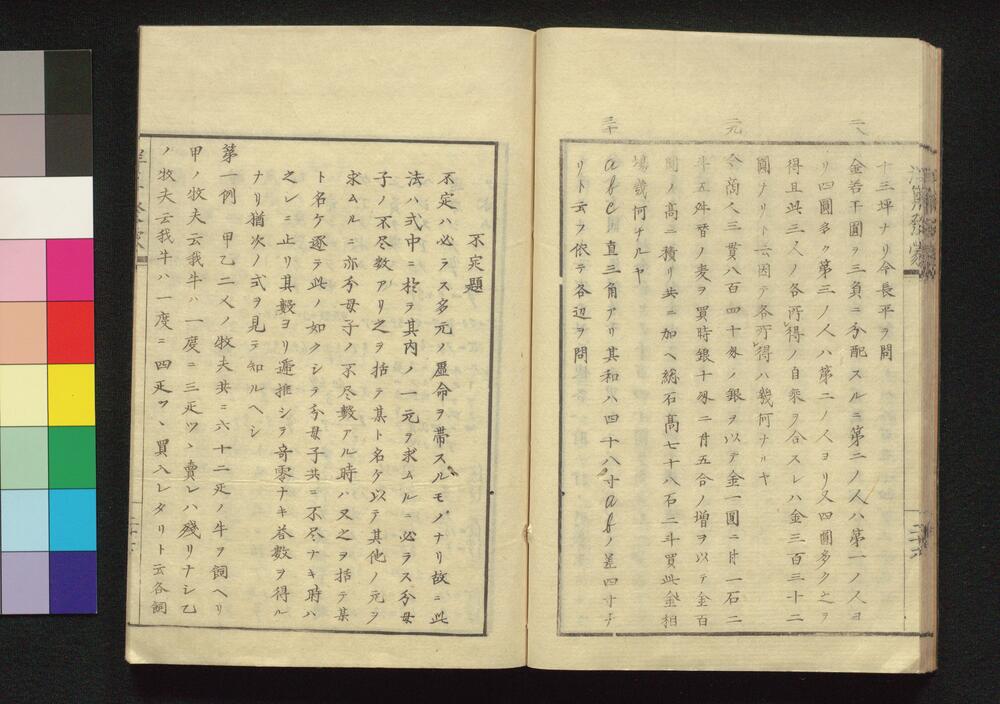 十三坪ナリ今長平ヲ問
二八
金若干圓ヲ三負ニ分配スルニ第二ノ人ハ第一ノ人ヨ
リ四圓多ク第三ノ人ハ第二ノ人ヨリ又四圓多ク之ヲ
得且此三人ノ各所得ノ自乘ヲ合スレハ金三百三十二
圓ナリト云因テ各所得ハ幾何ナルヤ
二九
今商人三貫八百四十匁ノ銀ヲ以テ金一圓ニ付一石二
斗五舛替ノ麦ヲ買時銀十匁ニ付五合ノ増ヲ以テ金百
間ノ高ニ積リ共ニ加ヘ総石高七十八石二斗買此金相
場幾何ナルヤ
三十
abc直三角アリ其和ハ四十八寸abノ差四寸ナ
リト云フ依テ各辺ヲ問
不定題
不定ハ必ラス多元ノ虚命ヲ帯スルモノナリ故ニ此
法ハ式中ニ於ヲ其内ノ一元ヲ求ムルニ必ラス分母
子ノ不尽数アリ之ヲ括テ某ト名ケ以テ其他ノ元ヲ
求ムルニ亦分母子ノ不尽数アル時ハ又之ヲ括テ某
ト名ケ逐テ此ノ如クシテ分母子共ニ不尽ナキ時ハ
之レニ止リ其數ヨリ逓推シテ奇零ナキ答数ヲ得ル
ナリ猶次ノ式ヲ見テ知ルヘシ
第一例　甲乙二人ノ牧夫共ニ六十二疋ノ牛ヲ飼ヘリ
甲ノ牧夫云我牛ハ一度ニ三疋ツヽ賣レハ殘リナシ乙
ノ牧夫云我牛ハ一度ニ四疋ツヽ買入レタリト云各飼